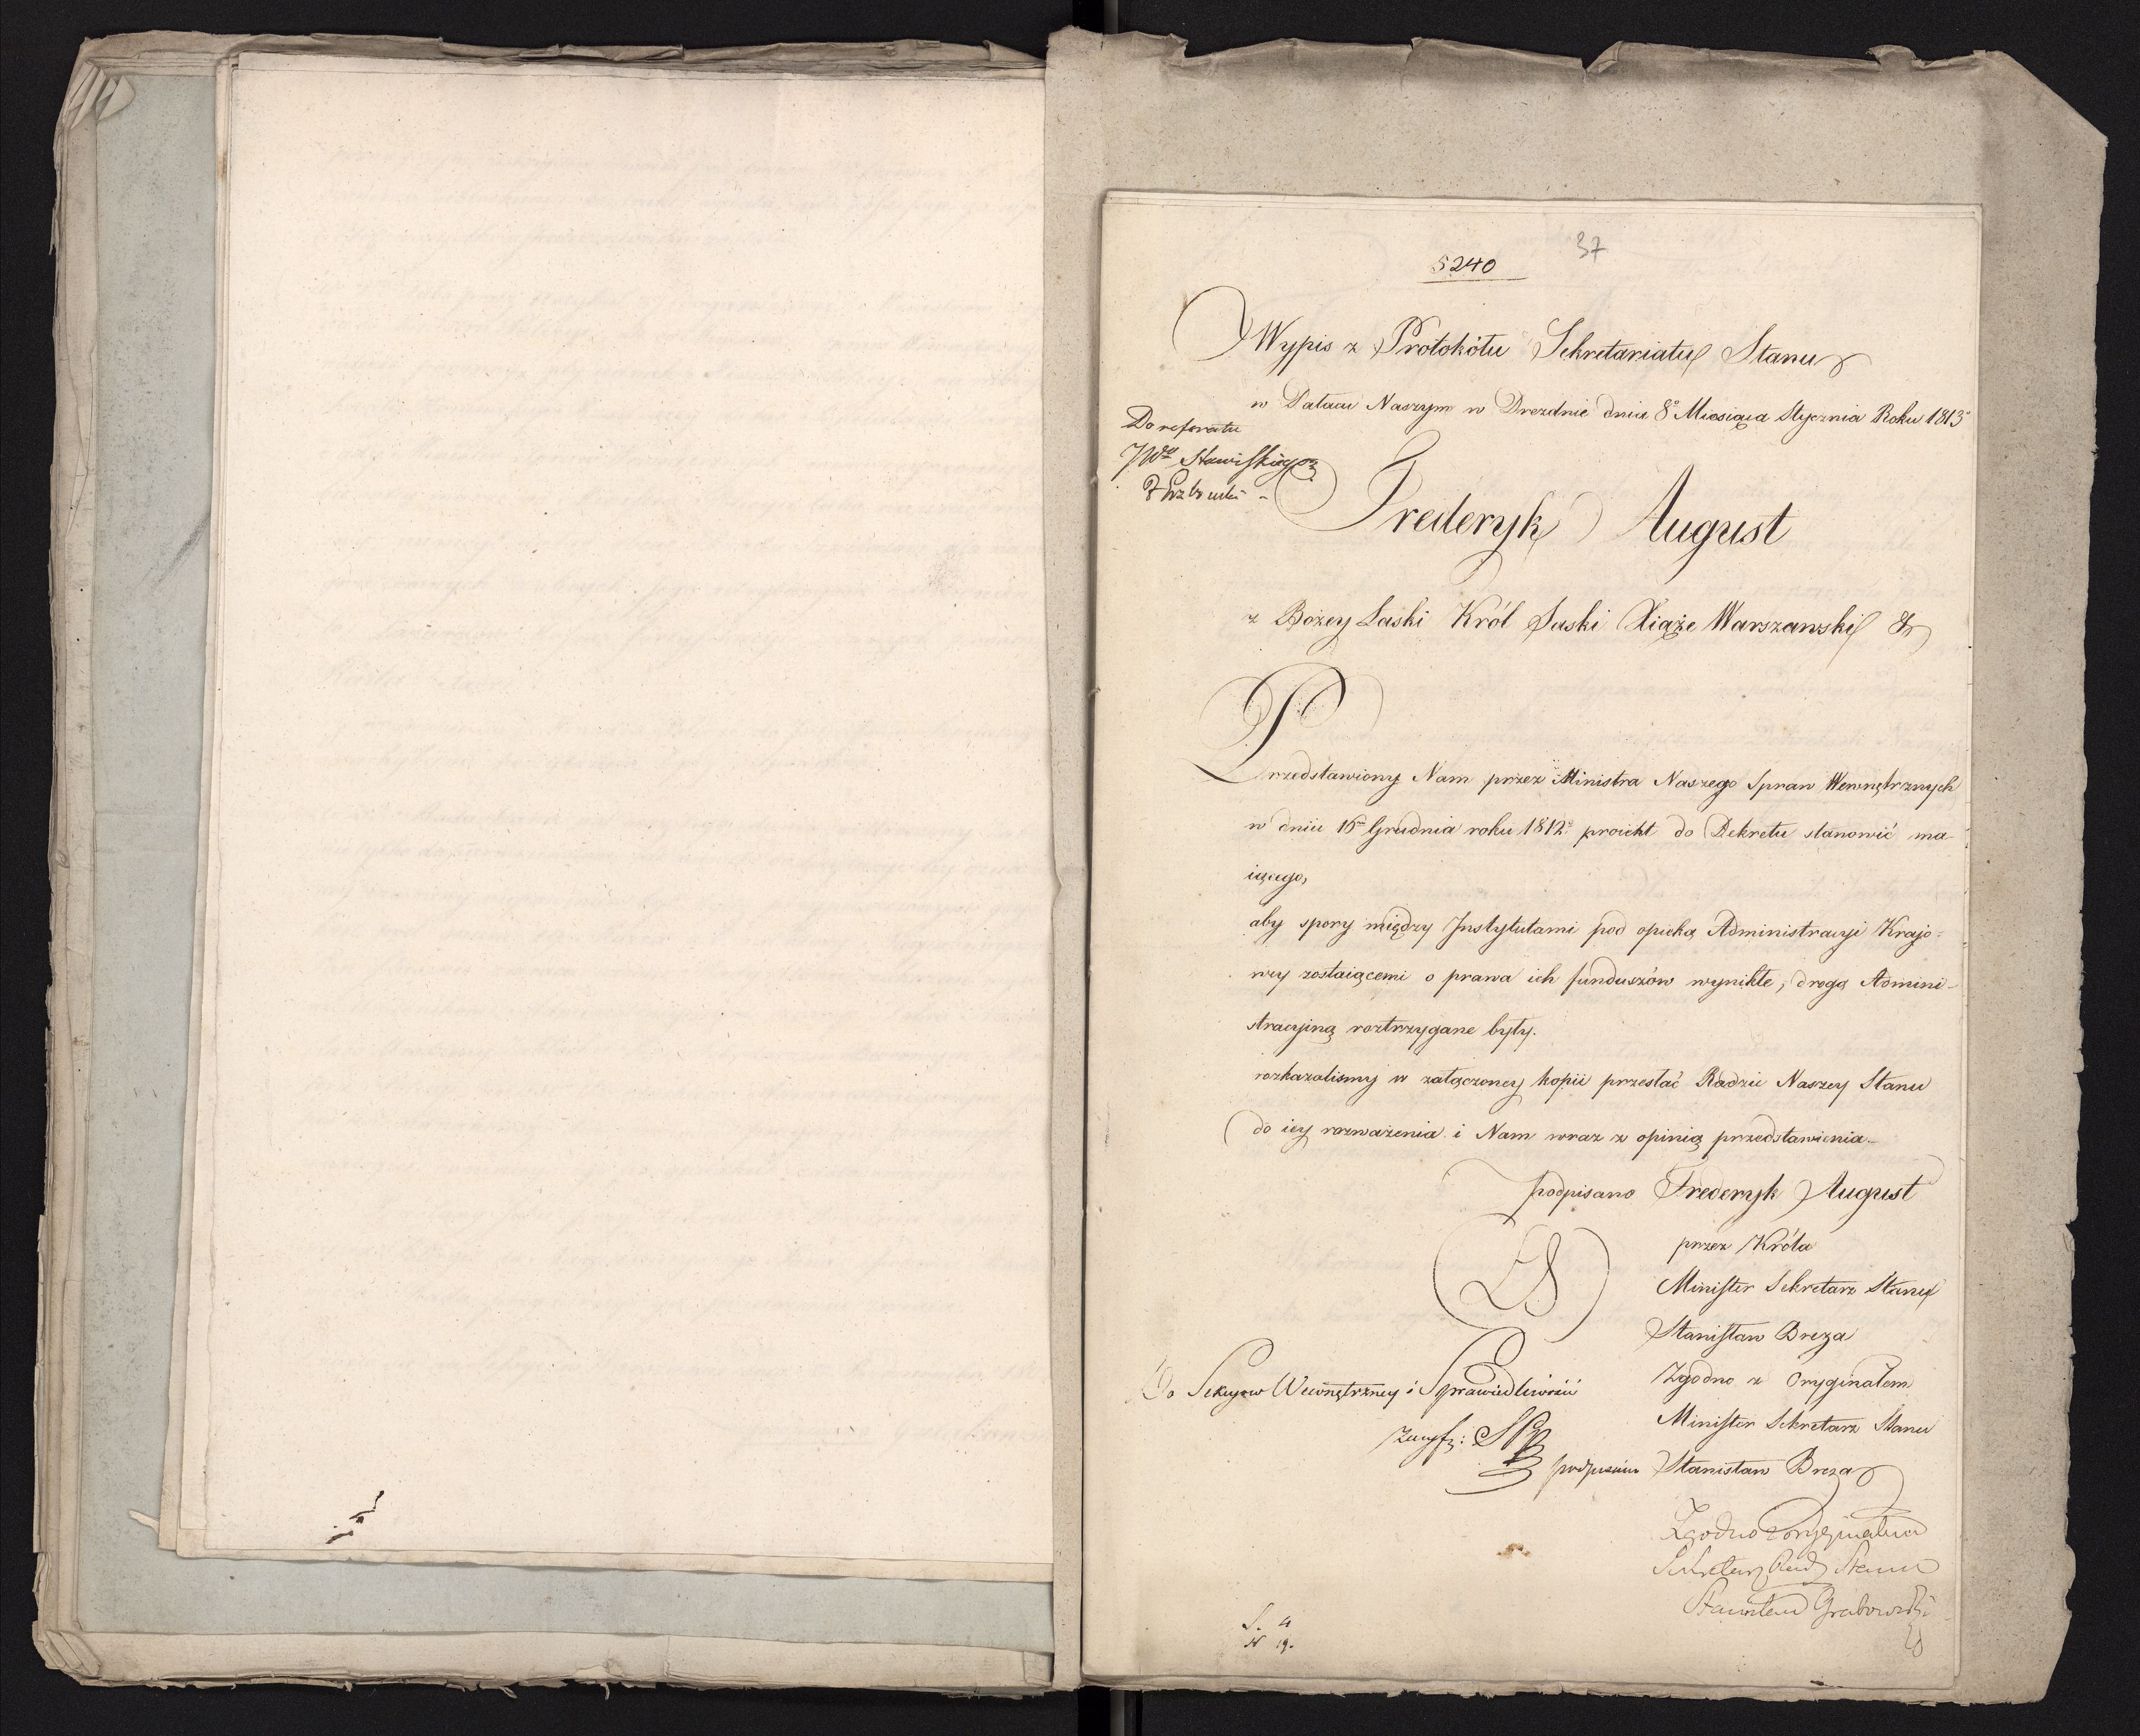 37
5240
Wypis z Protokółu Sekretariatu Stanu
w Pałacu Naszym w Dreznie dnia 8° Miesiąca Stycznia Roku 1813°
Do referatu
JWo Stawiskiego
Frederyk August
z Bożey Łaski Król Saski Xiąże Warszawski &
Przedstawiony Nam przez Ministra Naszego Spraw Wewnętrznych
w dniu 16° Grudnia roku 1812° proiekt do Dekretu stanowić ma-
iącego,
aby spory między Instytutami pod opieką Administracyi Krajo=
wey zostaiącemi o prawa ich funduszów wynikłe, drogą Admini-
stracyiną roztrzygane były.
rozkazalismy w załączoney kopii przesłać Radzie Naszey Stanu
do iey rozważenia i Nam wraz z opinią przedstawienia.-
podpisano Frederyk August
przez Króla
LS
Minister Sekretarz Stanu
Stanisław Breza
Do Sekcyow Wewnętrzney i Sprawiedliwości
Zgodno z Oryginałem
Minister Sekretarz Stanu
podpisano Stanisław Breza
Zgodno z oryginałem
Sekretarz Rady Stanu
Stanisław Grabowski
S. 4
N 19.